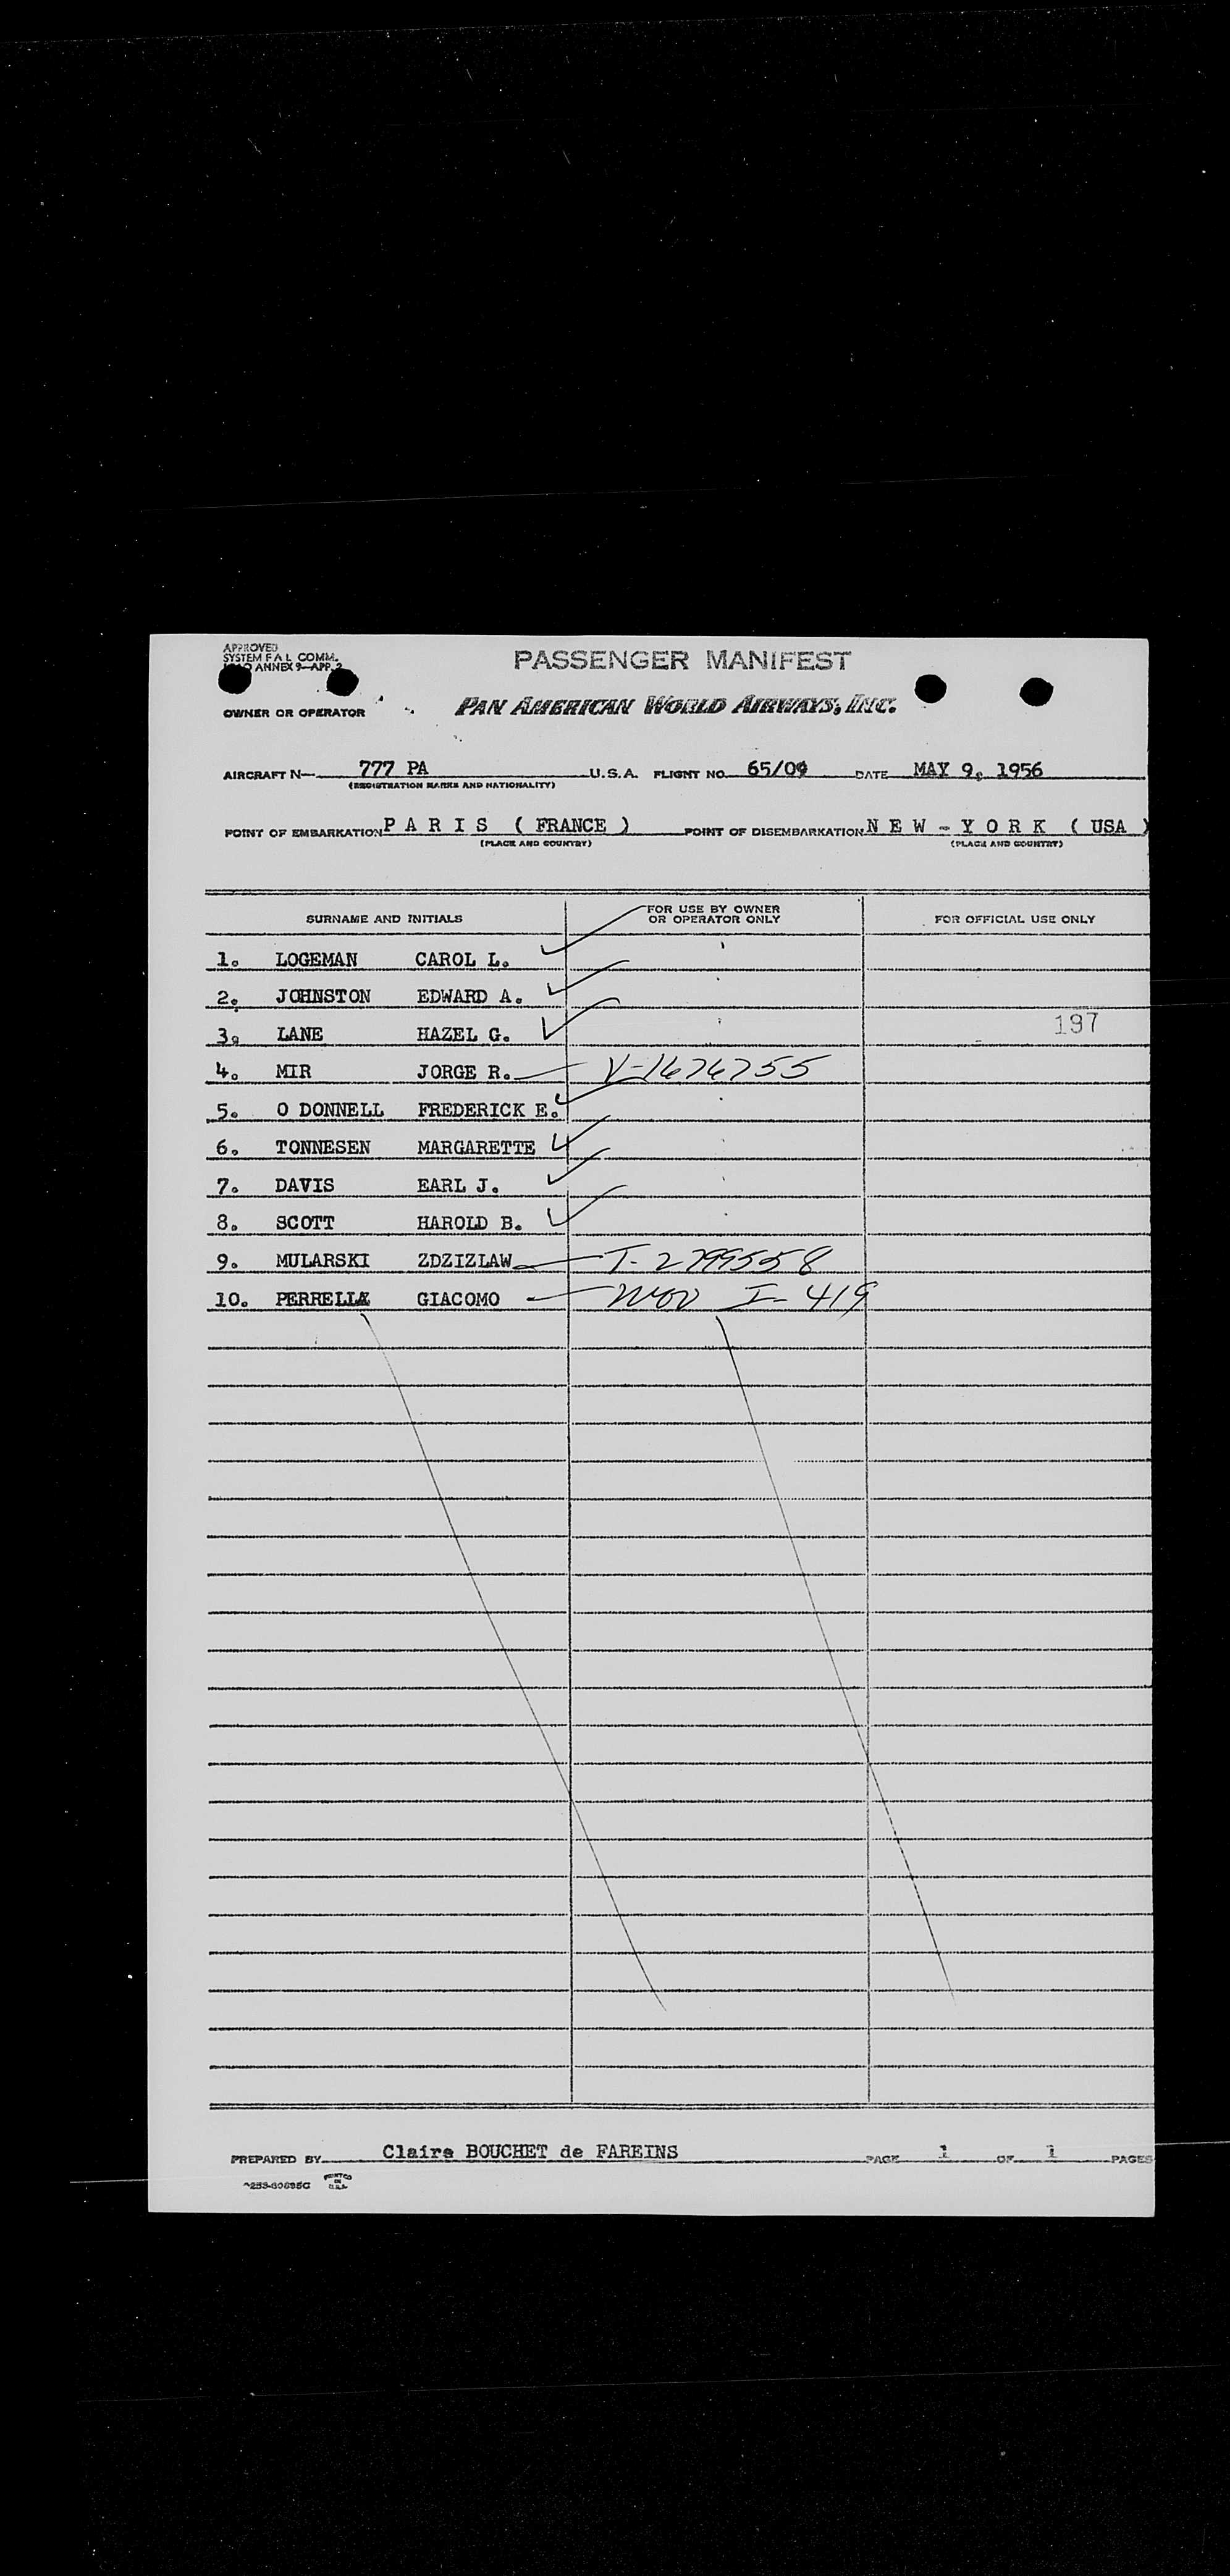 APPROVED
SYSTEM F A L COMM.
ANNEX 9—APP. 2
PASSENGER MANIFEST
OWNER OR OPERATOR PAN AMERICAN WORLD AIRWAYS, INC.
AIRCRAFT N— 777 PA U.S.A. FLIGHT NO. 65/09 DATE MAY 9, 1956
(REGISTRATION MARKS AND NATIONALITY)
POINT OF EMBARKATION P A R I S ( FRANCE ) POINT OF DISEMBARKATION N E W - Y O R K ( USA )
(PLACE AND COUNTRY) (PLACE AND COUNTRY)
SURNAME AND INITIALS FOR USE BY OWNER OR OPERATOR ONLY FOR OFFICIAL USE ONLY
1. LOGEMAN CAROL L.
2. JOHNSTON EDWARD A.
3. LANE HAZEL G. 197
4. MIR JORGE R. V-1676755
5. O DONNELL FREDERICK E.
6. TONNESEN MARGARETTE
7. DAVIS EARL J.
8. SCOTT HAROLD B.
9. MULARSKI ZDZIZLAW T-2799558
10. PERRELLA GIACOMO I-419
PREPARED BY Claire BOUCHET de FAREINS PAGE 1 OF 1 PAGES
PRINTED
IN
U.S.A.